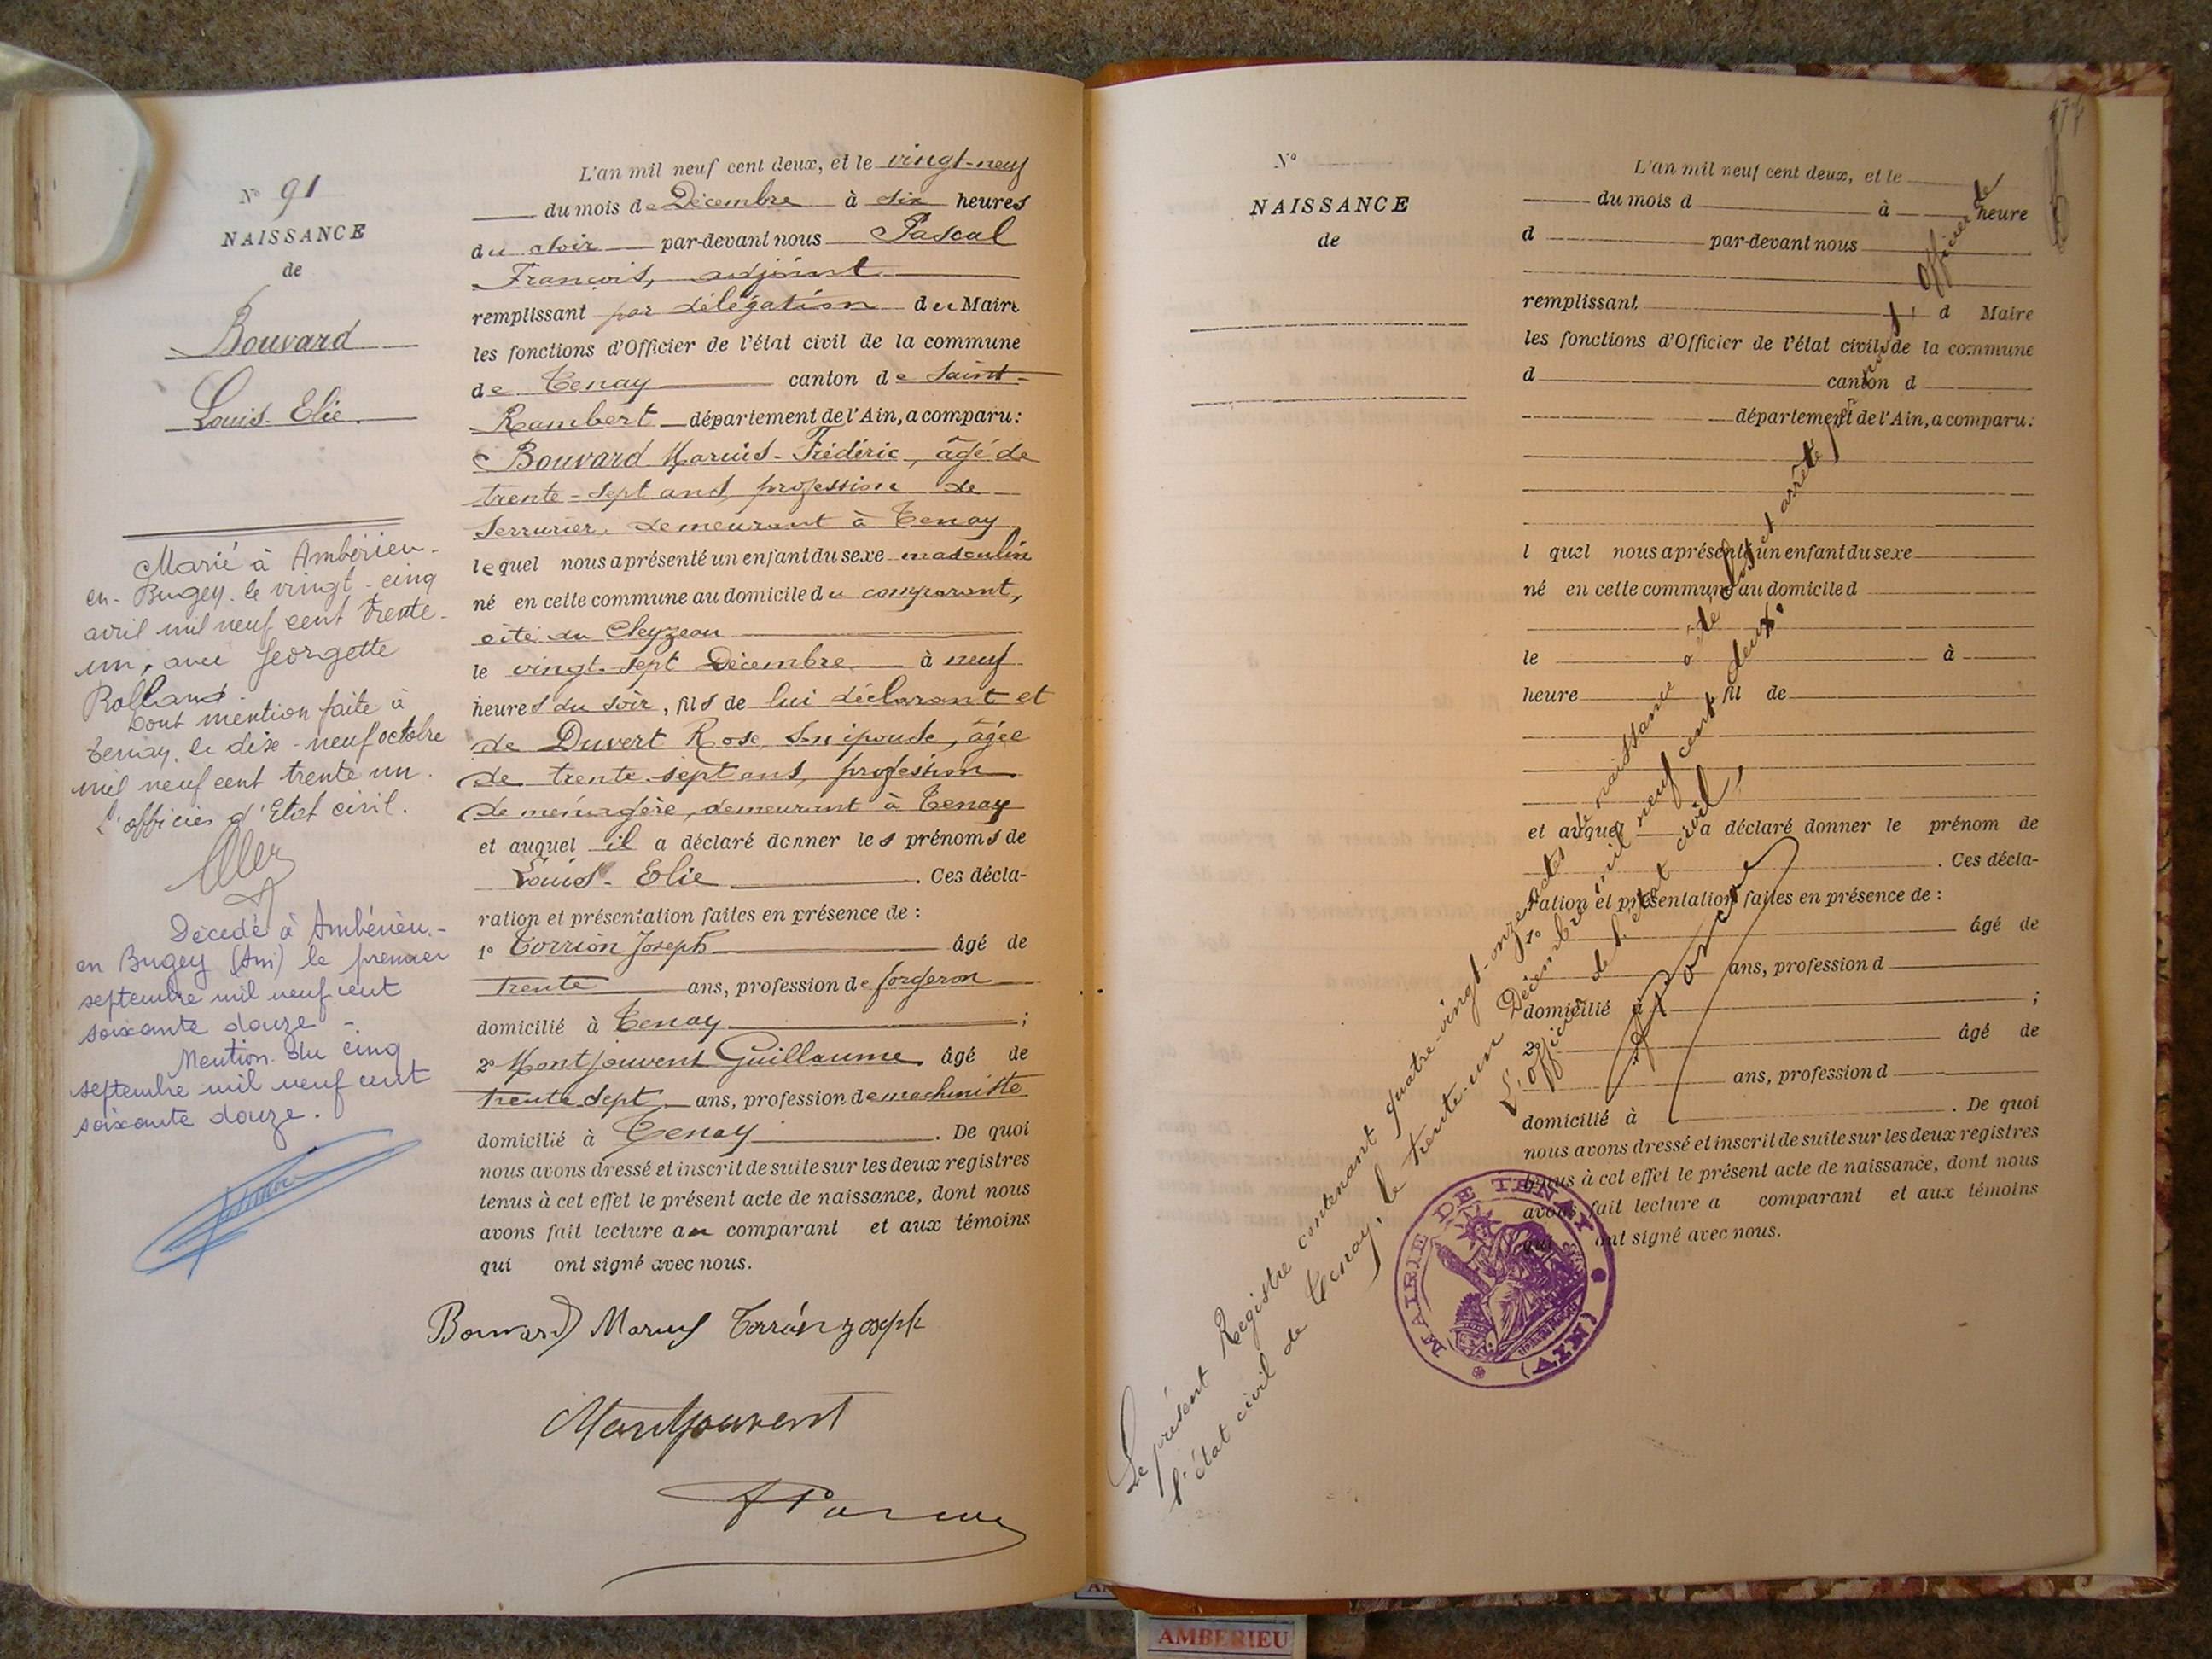 N° 91
NAISSANCE
de
Bouvard
Louis-Elie.
Marié à Ambérieu-
en-Bugey, le vingt-cinq
avril mil neuf cent trente-
un, avec Georgette
Rolland.
Dont mention faite à
Tenay, le dix-neuf octobre
mil neuf cent trente un.
L'officier d'Etat civil.
Décédé à Ambérieu-
en Bugey (Ain) le premier
septembre mil neuf cent
soixante douze -.
Mention du cinq
septembre mil neuf cent
soixante douze.
L'an mil neuf cent deux, et le vingt-neuf
du mois de Décembre à six heures
du soir par-devant nous Pascal
François, adjoint
remplissant par délégation du Maire
les fonctions d'Officier de l'état civil de la commune
de Tenay canton de Saint-
Rambert département de l'Ain, a comparu:
Bouvard Marius-Frédéric, âgé de
trente-sept ans, profession de
serrurier, demeurant à Tenay
lequel nous a présenté un enfant du sexe masculin
né en cette commune au domicile du comparant,
cité du Cleyzeau
le vingt-sept Décembre à neuf
heures du soir, fils de lui déclarant et
de Duvert Rose, son épouse, âgée
de trente sept ans, profession
de ménagère, demeurant à Tenay
et auquel il a déclaré donner les prénoms de
Louis-Elie. Ces décla-
ration et présentation faites en présence de :
1° Torrion Joseph âgé de
trente ans, profession de forgeron
domicilié à Tenay ;
2° Montjouvent Guillaume âgé de
trente sept ans, profession de machiniste
domicilié à Tenay. De quoi
nous avons dressé et inscrit de suite sur les deux registres
tenus à cet effet le présent acte de naissance, dont nous
avons fait lecture au comparant et aux témoins
qui ont signé avec nous.
Bouvard Marius Torrion Joseph
Montjouvent
N°
NAISSANCE
de
L'an mil neuf cent deux, et le
du mois d à heure
d par-devant nous
remplissant d Maire
les fonctions d'Officier de l'état civil de la commune
d canton d
département de l'Ain, a comparu:
l quel nous a présenté un enfant du sexe
né en cette commune au domicile d
le à
heure fil de
et auquel a déclaré donner le prénom de
. Ces décla-
ration et présentation faites en présence de :
1° âgé de
ans, profession d
domicilié à ;
2° âgé de
ans, profession d
domicilié à . De quoi
nous avons dressé et inscrit de suite sur les deux registres
tenus à cet effet le présent acte de naissance, dont nous
avons fait lecture a comparant et aux témoins
qui ont signé avec nous.
Le présent Registre contenant quatre-vingt-onze actes de naissance a été clos et arrêté par nous, officier de
l'état civil de Tenay, le trente-un Décembre mil neuf cent deux.
L'officier de l'état civil,
MAIRIE DE TENAY
(AIN)
AMBERIEU